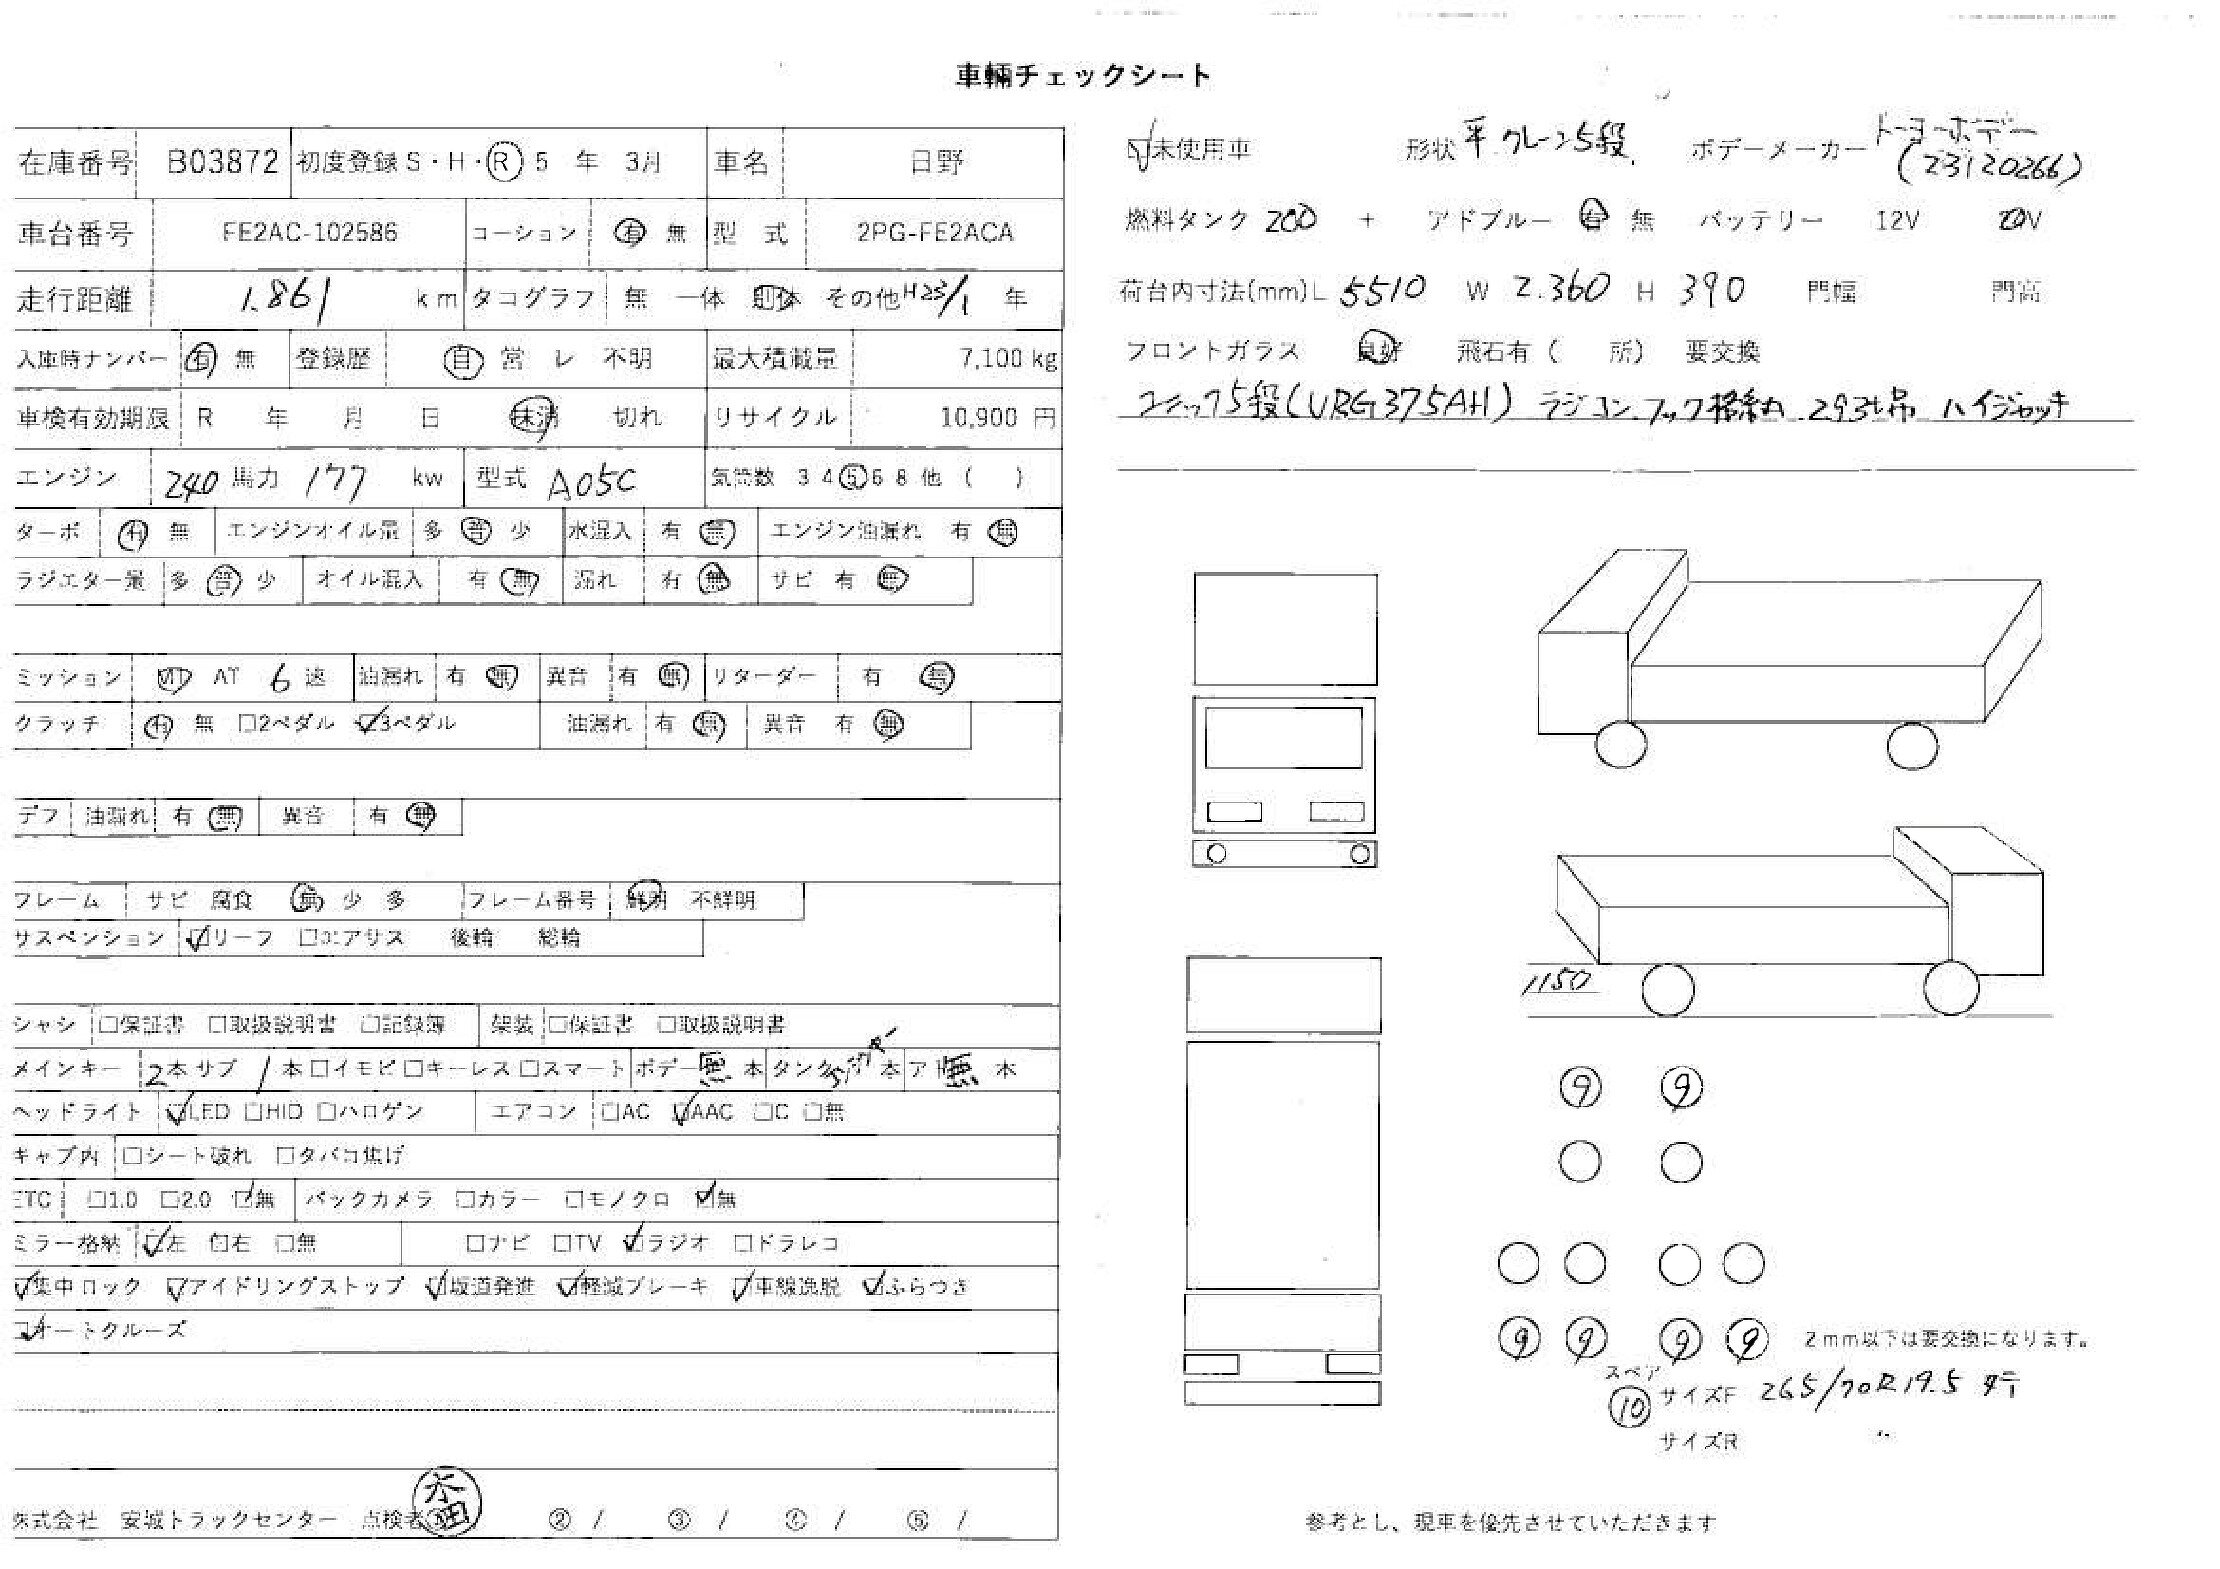 車輛チェックシート
在庫番号 B03872 初度登録 S・H・R 5 年 3月 車名 日野
車台番号 FE2AC-102586 コーション 有 無 型 式 2PG-FE2ACA
走行距離 1.861 km タコグラフ 無 一体 別体 その他 年
入庫時ナンバー 有 無 登録歴 自 営 レ 不明 最大積載量 7,100 kg
車検有効期限 R 年 月 日 抹消 切れ リサイクル 10,900 円
エンジン 240 馬力 177 kw 型式 A05C 気筒数 3 4 5 6 8 他 ( )
ターボ 有 無 エンジンオイル量 多 普 少 水混入 有 無 エンジン油漏れ 有 無
ラジエター量 多 普 少 オイル混入 有 無 漏れ 有 無 サビ 有 無
ミッション MT AT 6 速 油漏れ 有 無 異音 有 無 リターダー 有 無
クラッチ 有 無 □2ペダル ☑3ペダル 油漏れ 有 無 異音 有 無
デフ 油漏れ 有 無 異音 有 無
フレーム サビ 腐食 無 少 多 フレーム番号 鮮明 不鮮明
サスペンション ☑リーフ □エアサス 後輪 総輪
シャシ □保証書 □取扱説明書 □記録簿 架装 □保証書 □取扱説明書
メインキー 2本 サブ 1 本 □イモビ □キーレス □スマート ボデー 無 本 タンク 本 ア 無 本
ヘッドライト ☑LED □HID □ハロゲン エアコン □AC ☑AAC □C □無
キャブ内 □シート破れ □タバコ焦げ
ETC □1.0 □2.0 ☑無 バックカメラ □カラー □モノクロ ☑無
ミラー格納 ☑左 □右 □無 □ナビ □TV ☑ラジオ □ドラレコ
☑集中ロック ☑アイドリングストップ ☑坂道発進 ☑軽減ブレーキ ☑車線逸脱 ☑ふらつき
☑オートクルーズ
株式会社 安城トラックセンター 点検者① ② / ③ / ④ / ⑤ /
☑未使用車 形状 平 クレーン5段. ボデーメーカー トーヨーボデー
(23120266)
燃料タンク 200 + アドブルー 有 無 バッテリー 12V 24V
荷台内寸法(mm) L 5510 W 2.360 H 390 門幅 門高
フロントガラス 良好 飛石有 ( 所) 要交換
ユニック5段(URG375AH) ラジコン フック格納 2.93t吊 ハイジャッキ
1150
9 9
9 9 9 9 2mm以下は要交換になります。
スペア
10 サイズF 265/70R19.5
サイズR 〃
参考とし、現車を優先させていただきます